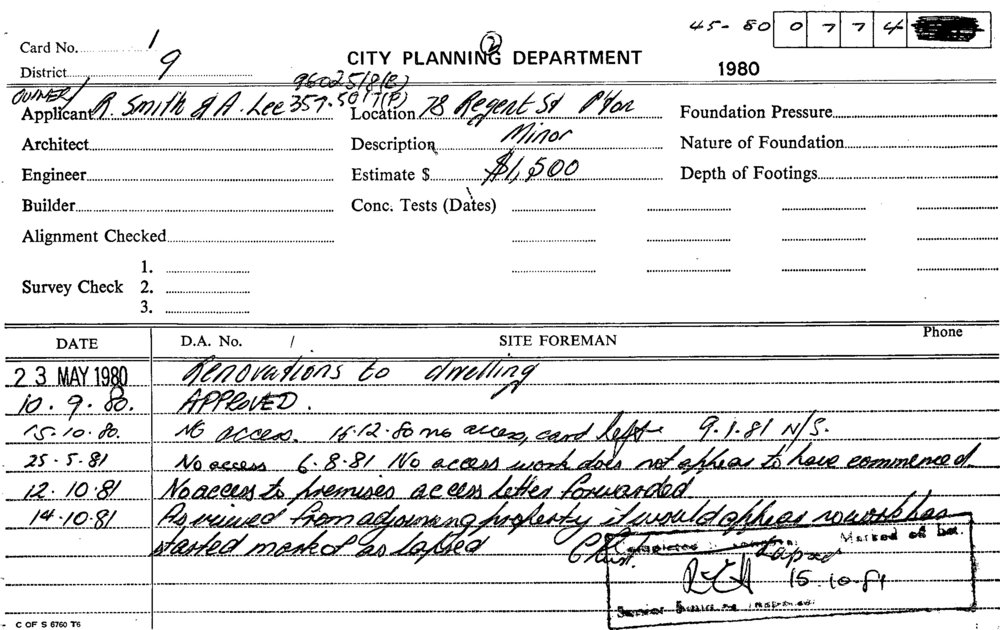 45-80 0774
Card No. 1
2
CITY PLANNING DEPARTMENT
1980
District 9
9602518(B)
OWNER/
Applicant R. Smith & A. Lee 357.5017(P) Location 78 Regent St P'ton Foundation Pressure
Architect Description Minor Nature of Foundation
Engineer Estimate $ $1,500 Depth of Footings
Builder Conc. Tests (Dates)
Alignment Checked
1.
Survey Check 2.
3.
DATE D.A. No. / SITE FOREMAN Phone
23 MAY 1980 Renovations to dwelling
10.9.80. APPROVED.
15.10.80. No access. 16.12.80 no access, card left 9.1.81 N/S.
25.5.81 No access 6.8.81 No access work does not appear to have commenced.
12.10.81 No access to premises access letter forwarded.
14.10.81 As viewed from adjoining property it would appear no work has
started marked as lapsed
Completed Marked off
Lapsed
15.10.81
Senior Building Inspector
C OF S 6760 T6